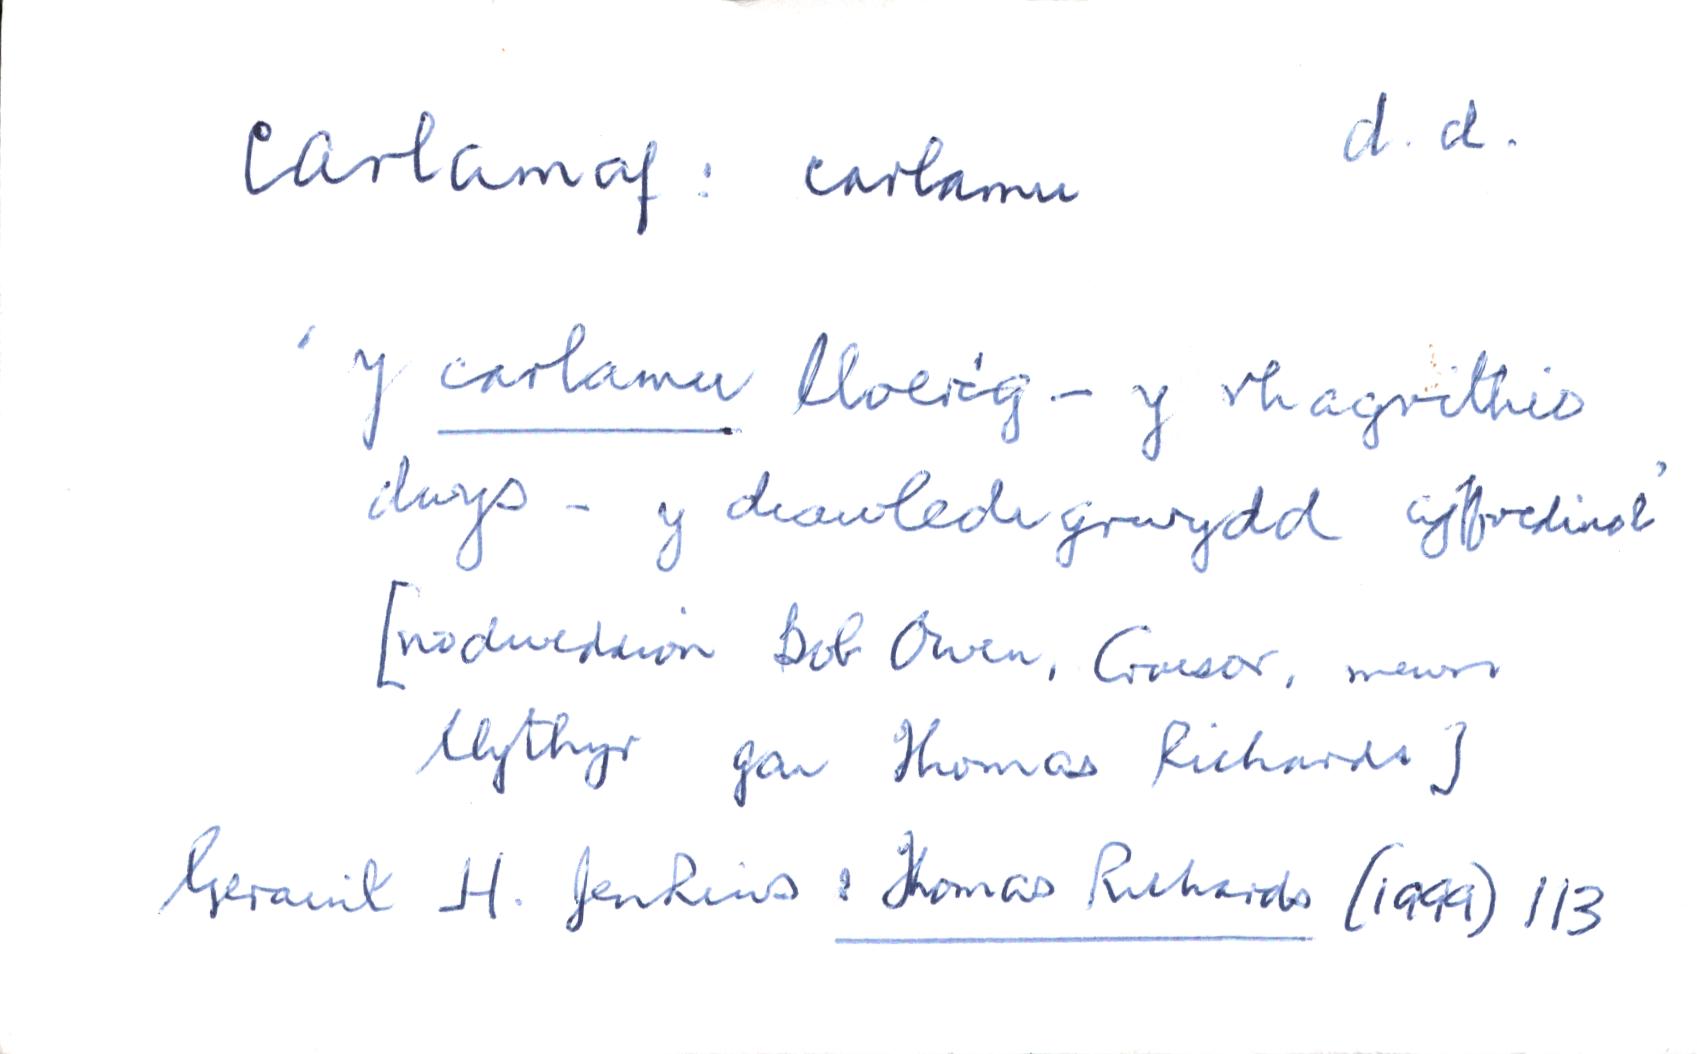 carlamaf : carlamu d.d.
'y carlamu lloerig – y rhagrithio
dwys – y diawledigrwydd cyffredinol'
[nodweddion Bob Owen, Croesor, mewn
llythyr gan Thomas Richards]
Geraint H. Jenkins : Thomas Richards (1999) 113